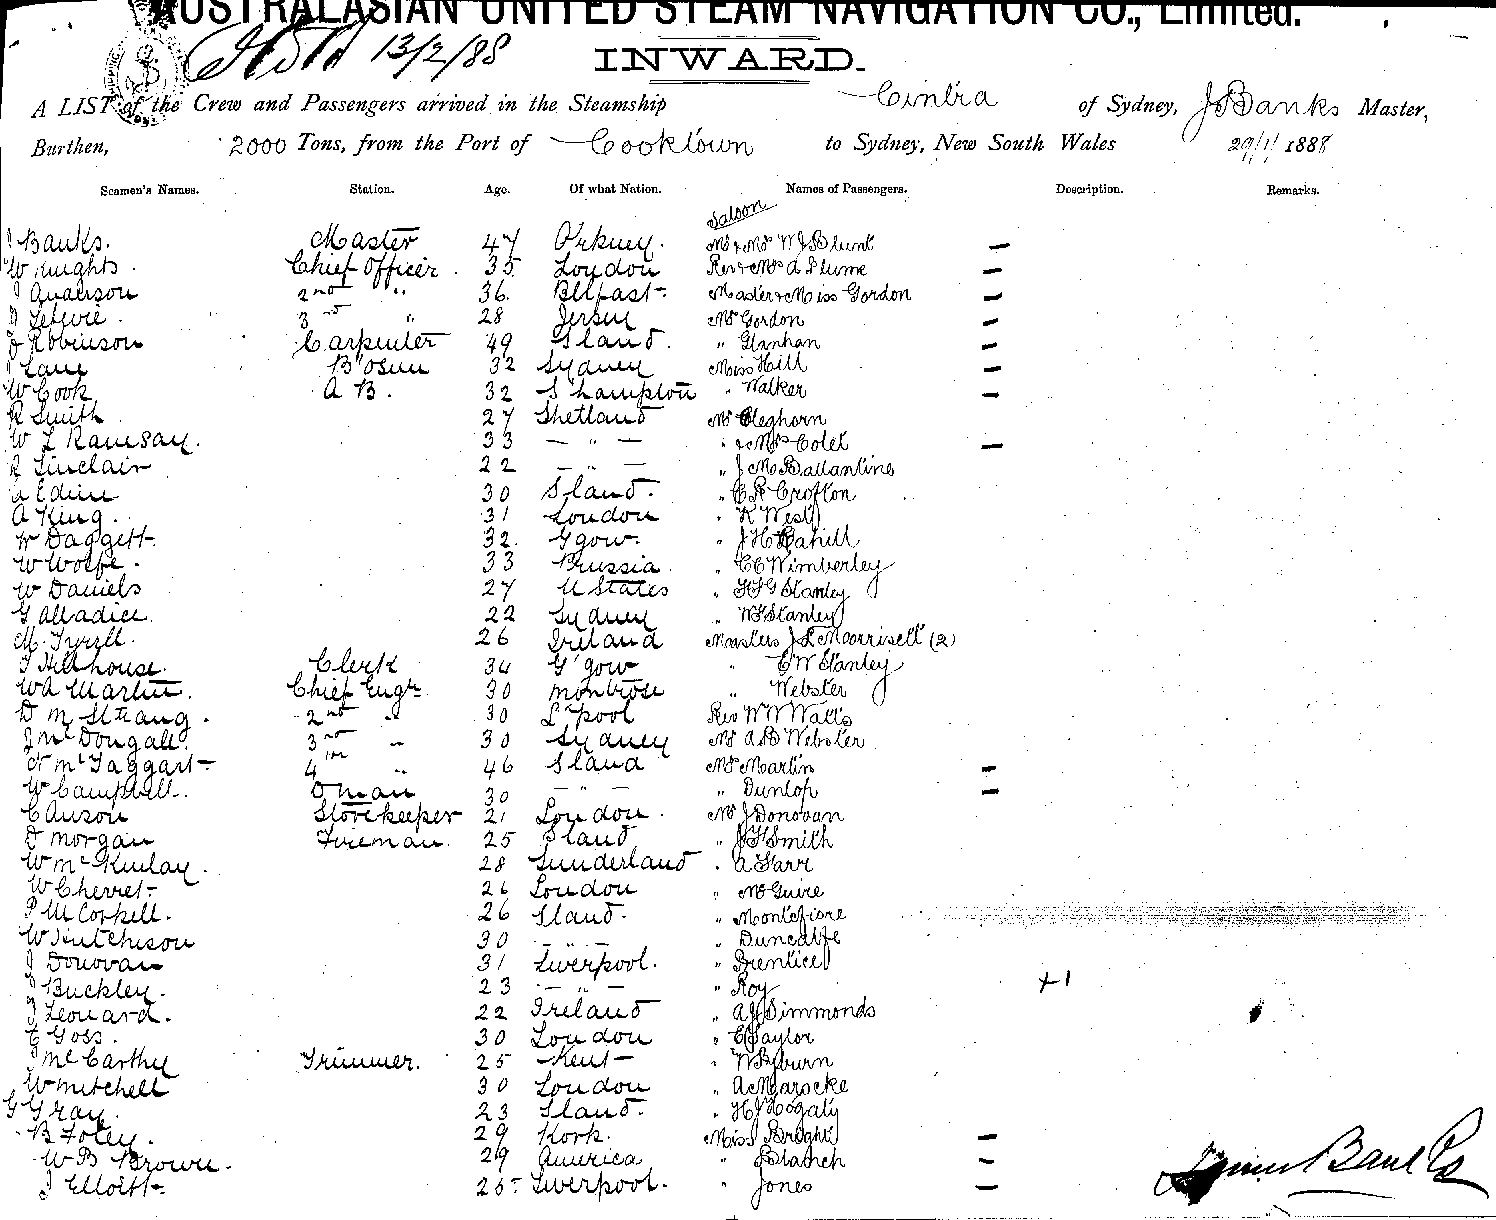 AUSTRALASIAN UNITED STEAM NAVIGATION CO., Limited.
13/2/88
INWARD.
A LIST of the Crew and Passengers arrived in the Steamship Cintra of Sydney, J Banks Master,
Burthen, 2000 Tons, from the Port of Cooktown to Sydney, New South Wales 29/1/1888
Seamen's Names. Station. Age. Of what Nation. Names of Passengers. Description. Remarks.
Saloon
J Banks. Master 47 Orkney. Mr & Mrs W J Blunt —
W Knights. Chief Officer. 35 London Rev & Mrs A Plume —
J Anderson 2nd " 36. Belfast Master & Miss Gordon —
3rd " 28 Jersey Mrs Gordon —
J Robinson Carpenter 49 Sland. " Glanhan —
J Lane B'osun 32 Sydney Miss Hill —
W Cook A B. 32 S'hampton " Walker —
R Smith 27 Shetland Mr Cleghorn
W L Ramsay. 33 — " — " & Mrs Colet —
R Sinclair 22 — " — " J M Ballantine
A Edin 30 Sland. " C R Crofton
A King. 31 London " K West
W Daggett. 32. G'gow. " J H Cahill
W Wolfe. 33 Prussia " C C Wimberley
W Daniels 27 U States " H F G Stanley
G Alladice. 22 Sydney " W F Stanley
M. Tyrell. 26 Ireland Masters J L Morrisett (2)
J Hillhouse. Clerk 34 G'gow " C W Stanley
W A Martin. Chief Engr. 30 Montrose " Webster
D M Strang. 2nd " 30 L'pool Rev W W Watts
J McDougall. 3rd " 30 Sydney Mr A B Webster
McTaggart 4th " 46 Sland Mrs Martin —
W Campbell. D'man 30 — " — " Dunlop —
C Anson Storekeeper 21 London. Mr J Donovan
D Morgan Fireman. 25 Sland " J H Smith
W McKinlay. 28 Sunderland " A Farr
W Cherret 26 London " McGuire
P McCorkell. 26 Sland. " Montefiore
W Hutchison 30 — " — " Duncalfe
J Donovan 31 Liverpool. " Prentice
J Buckley. 23 — " — " Roy +1
J Leonard. 22 Ireland " A J Simmonds
E Goss. 30 London " E Taylor
J McCarthy Trimmer. 25 Kent " W Byburn
W Mitchell 30 London " A C Marocke
G Gray. 23 Sland. " H J Hogaty
B Foley. 29 Kork. Miss Bright —
W B Brown. 29 America " Blanch —
J Elliott 25 Liverpool. " Jones —
James Banks